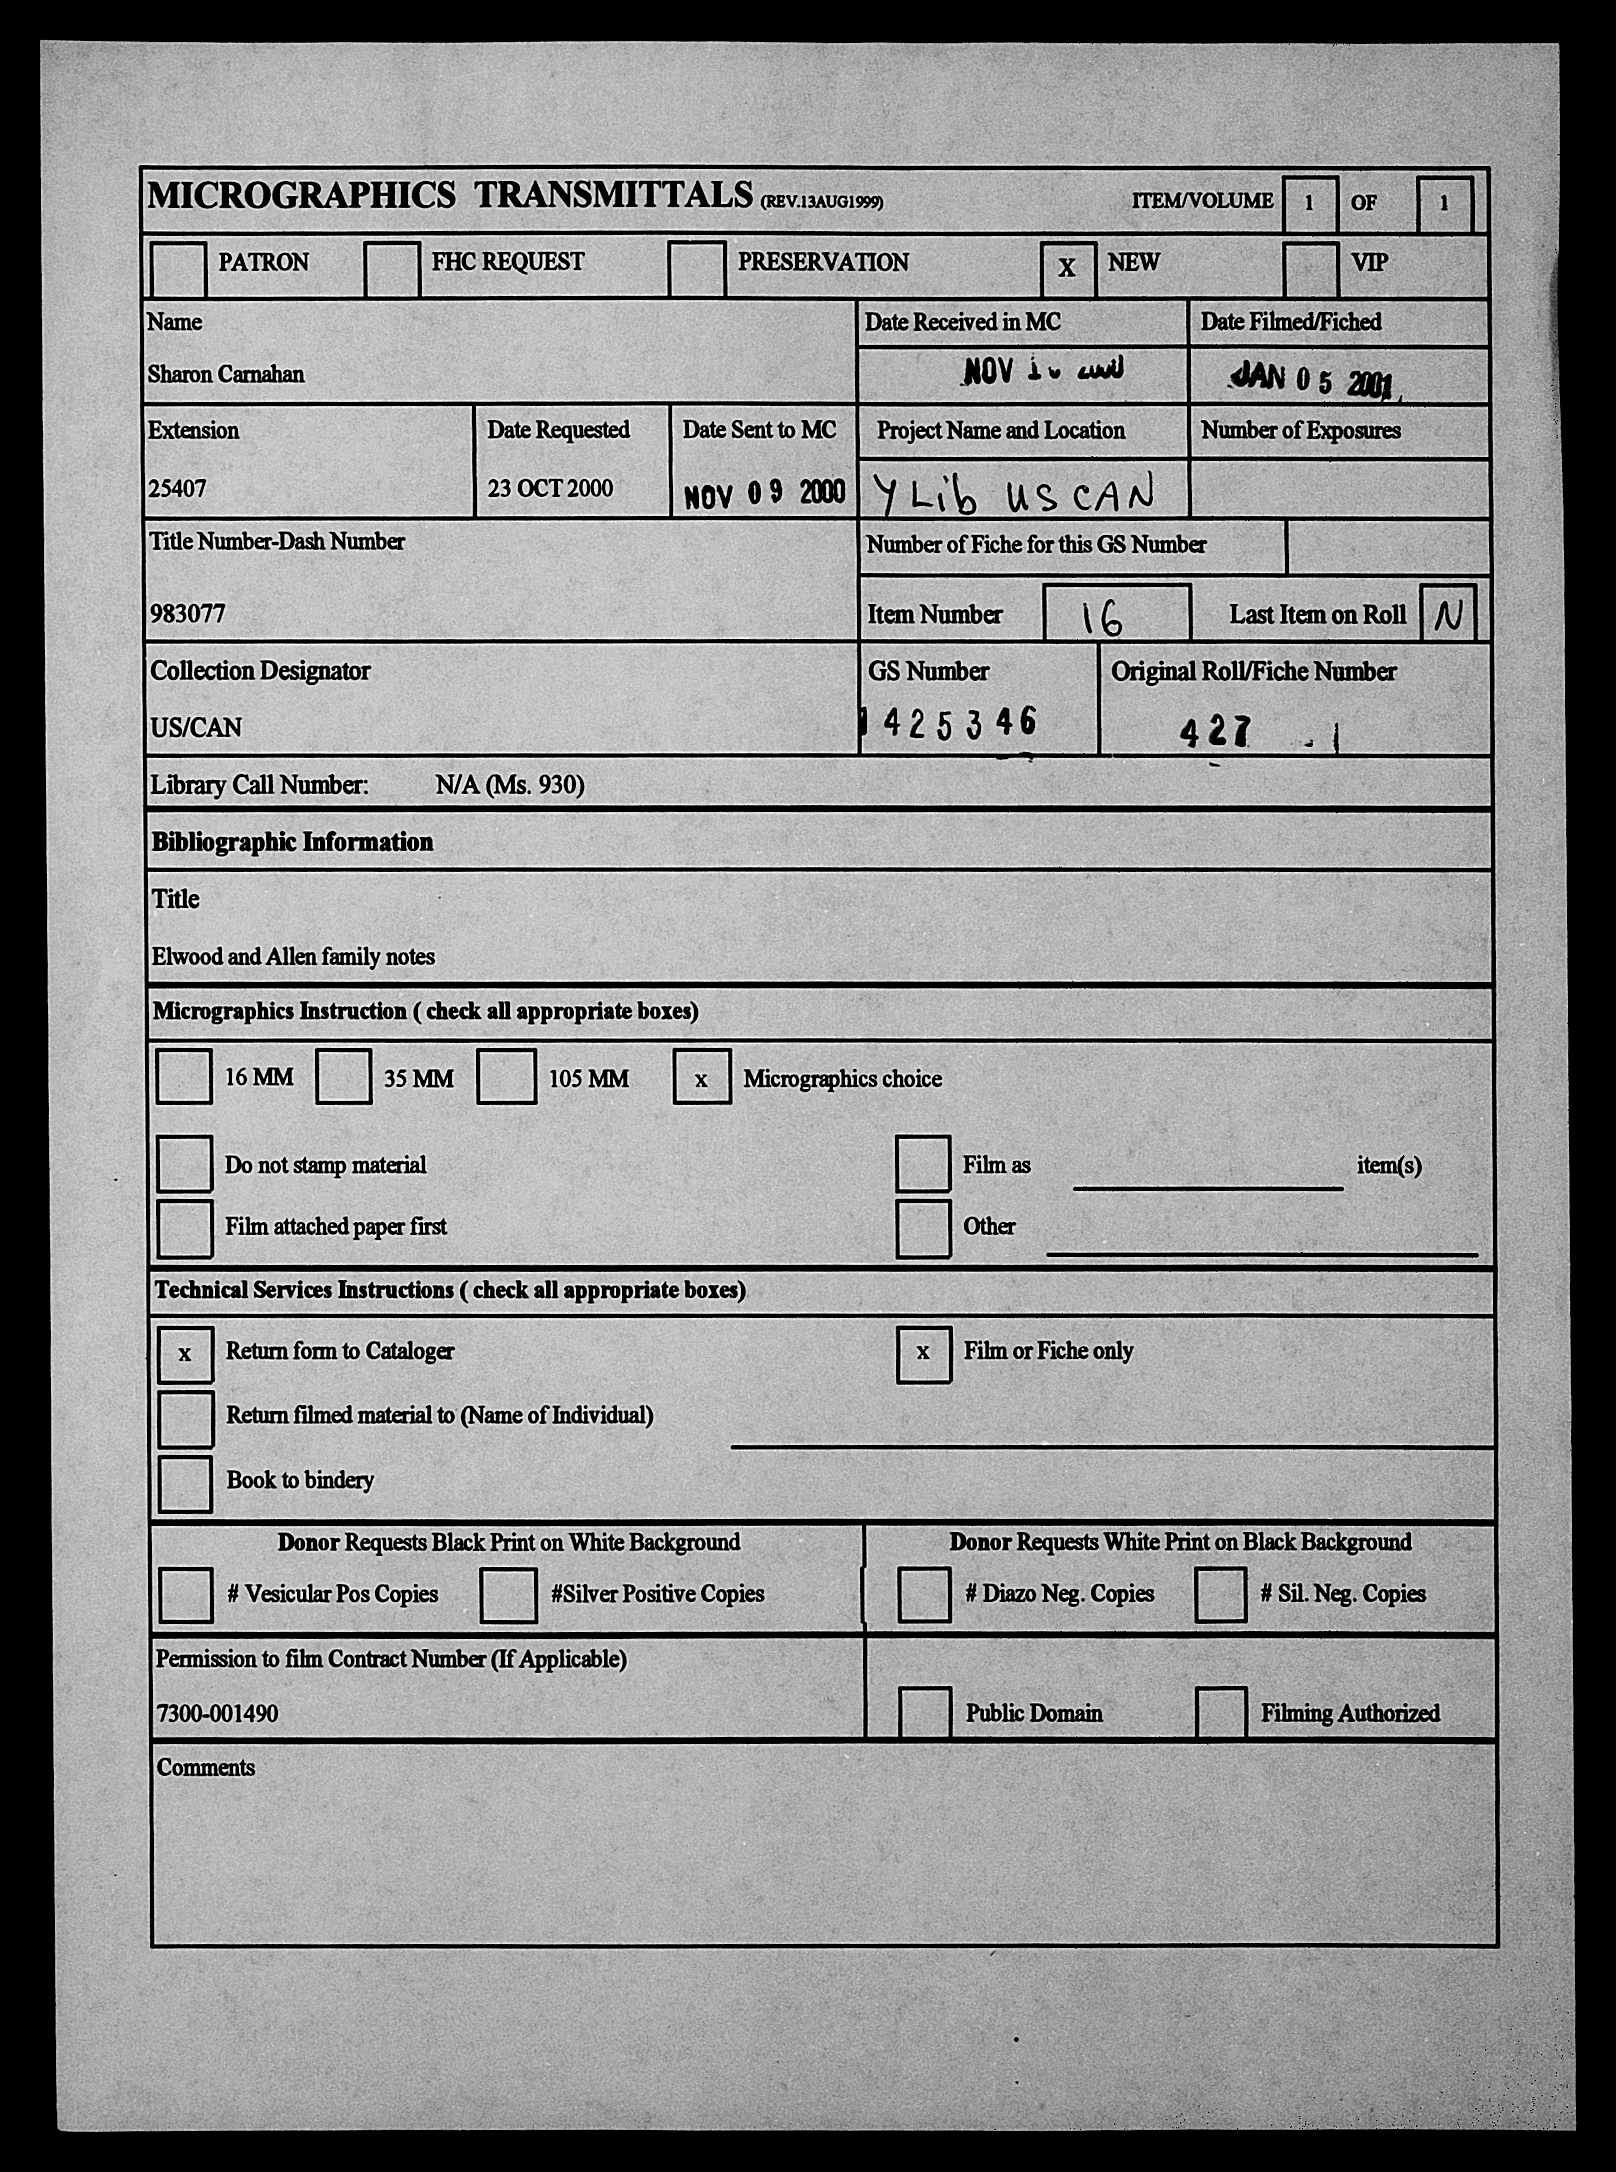 MICROGRAPHICS TRANSMITTALS (REV.13AUG1999) ITEM/VOLUME 1 OF 1
PATRON FHC REQUEST PRESERVATION X NEW VIP
Name Date Received in MC Date Filmed/Fiched
Sharon Carnahan NOV JAN 05 2001
Extension Date Requested Date Sent to MC Project Name and Location Number of Exposures
25407 23 OCT 2000 NOV 09 2000 Y Lib US CAN
Title Number-Dash Number Number of Fiche for this GS Number
983077 Item Number 16 Last Item on Roll N
Collection Designator GS Number Original Roll/Fiche Number
US/CAN 1425346 427 - 1
Library Call Number: N/A (Ms. 930)
Bibliographic Information
Title
Elwood and Allen family notes
Micrographics Instruction ( check all appropriate boxes)
16 MM 35 MM 105 MM x Micrographics choice
Do not stamp material Film as item(s)
Film attached paper first Other
Technical Services Instructions ( check all appropriate boxes)
x Return form to Cataloger x Film or Fiche only
Return filmed material to (Name of Individual)
Book to bindery
Donor Requests Black Print on White Background Donor Requests White Print on Black Background
# Vesicular Pos Copies #Silver Positive Copies # Diazo Neg. Copies # Sil. Neg. Copies
Permission to film Contract Number (If Applicable)
7300-001490 Public Domain Filming Authorized
Comments